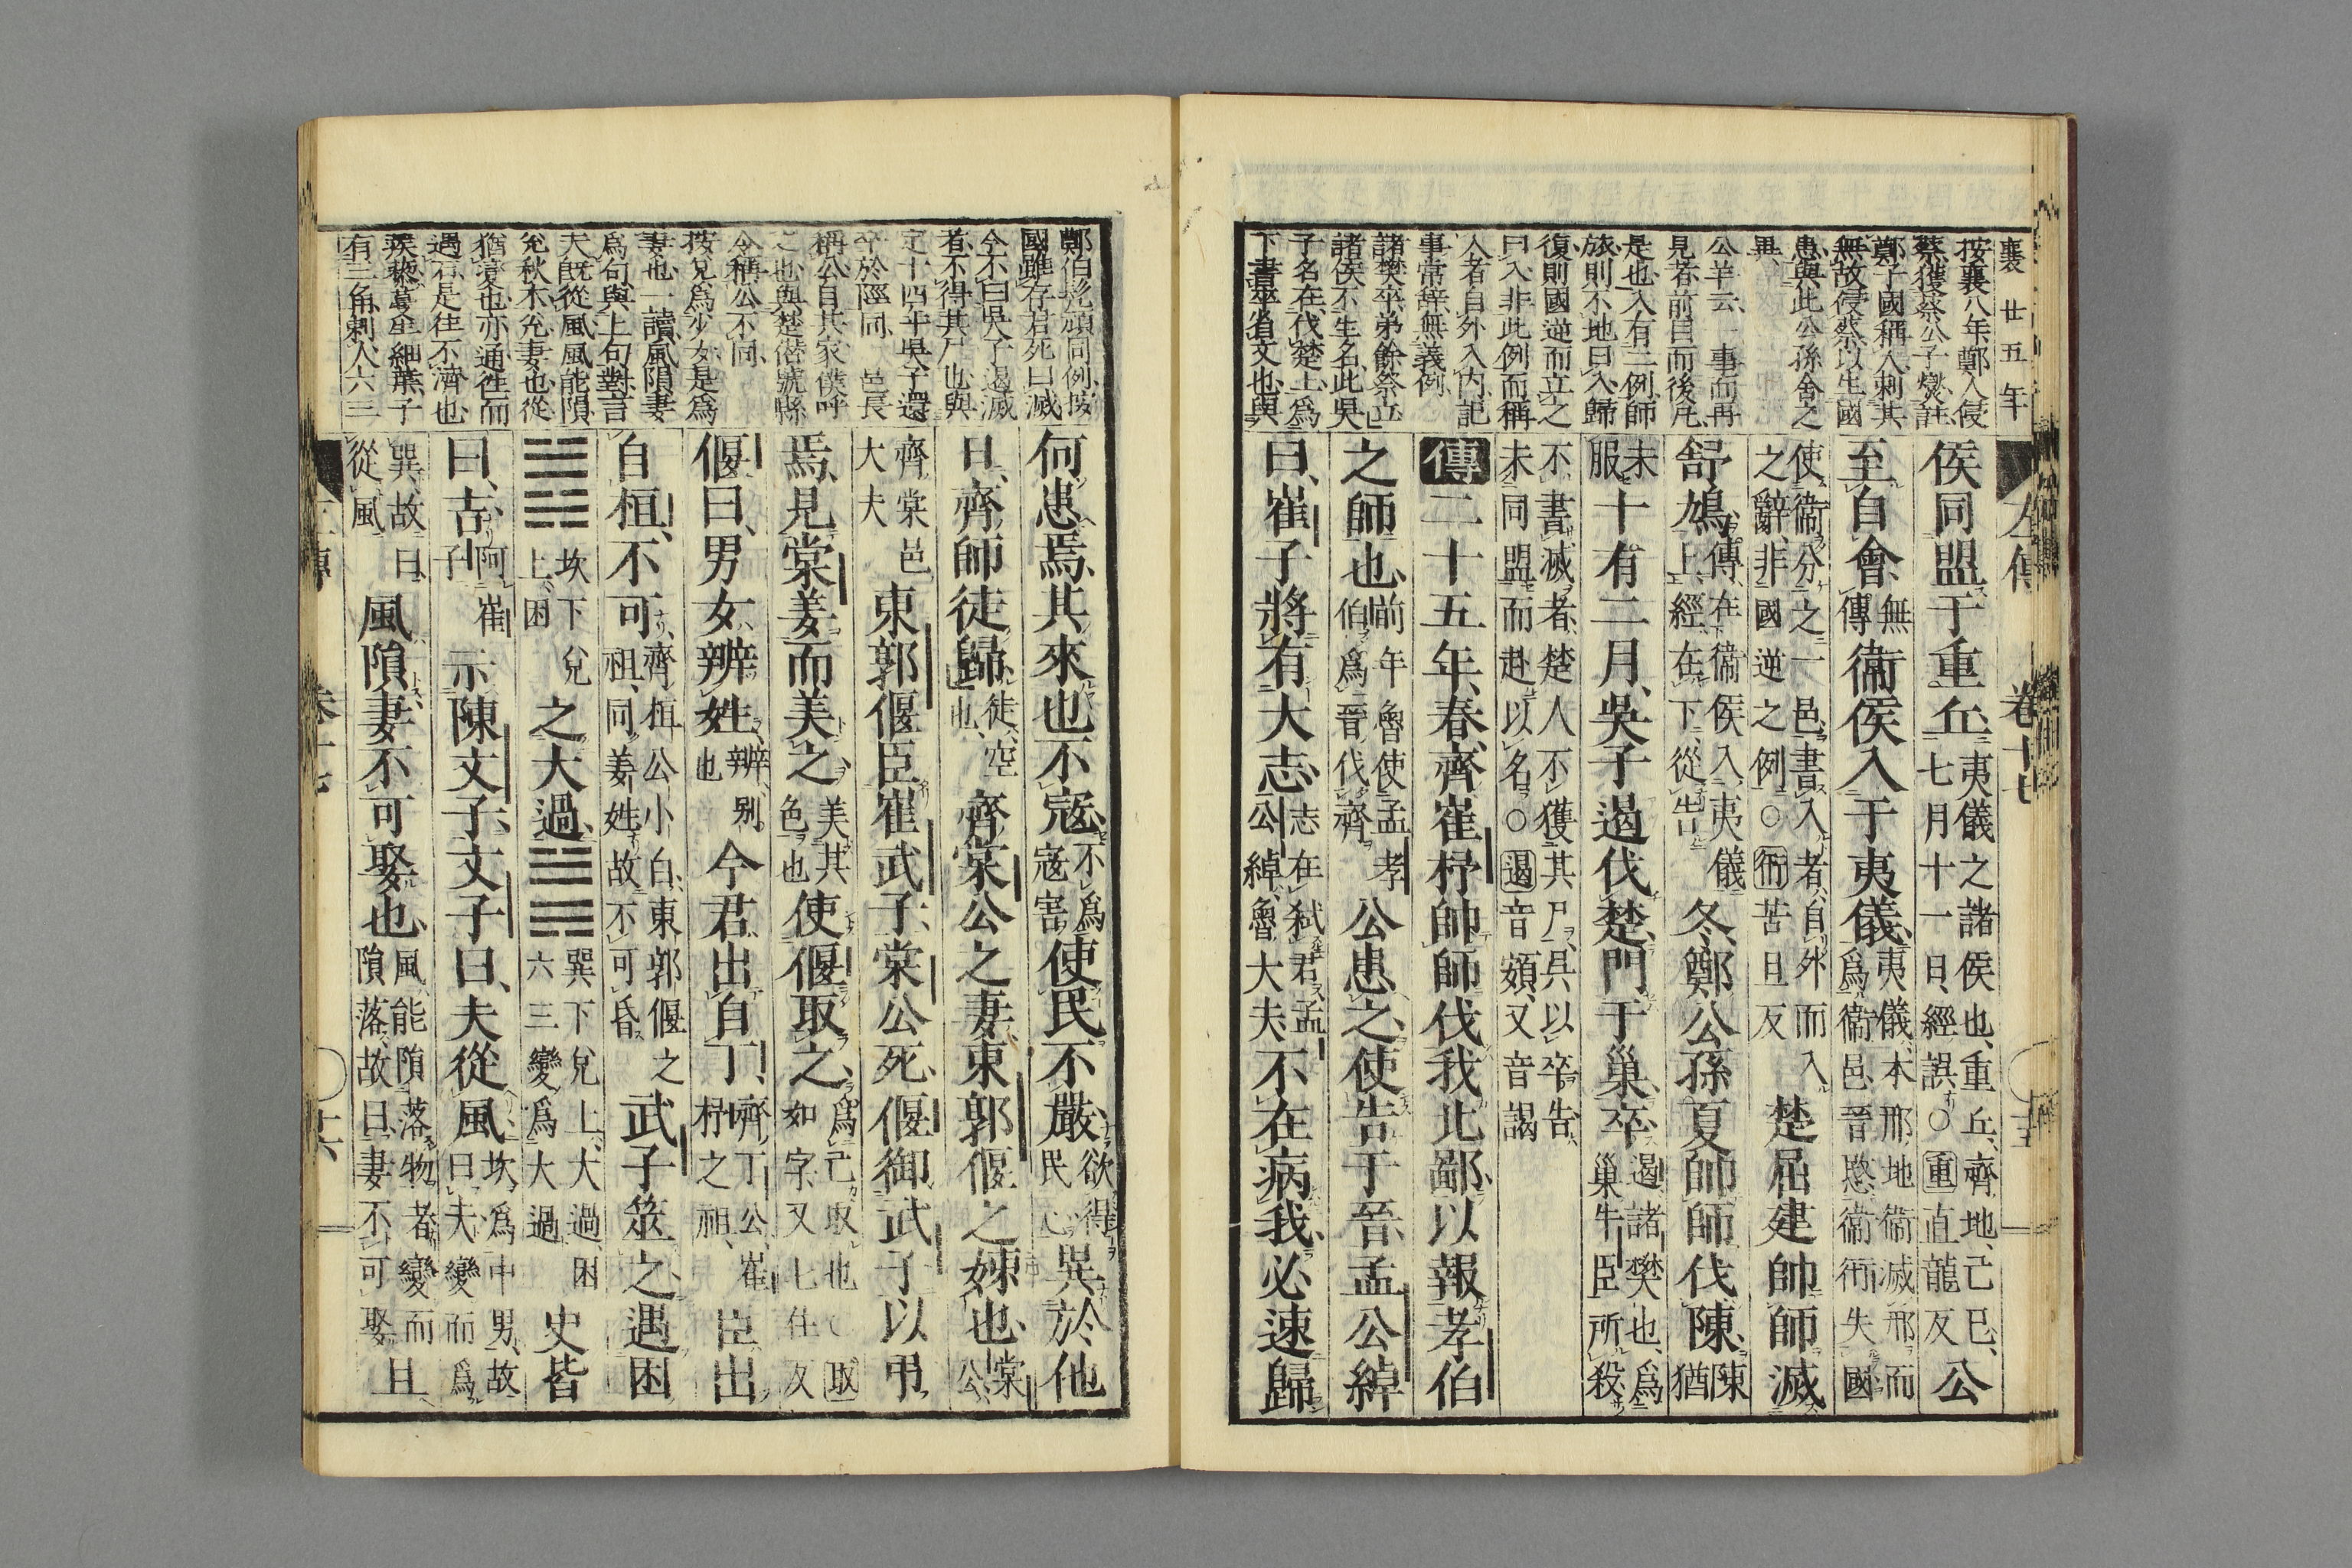 襄廿五年
按襄八年鄭人侵
蔡獲蔡公子燮註
鄭子國稱人刺其
無故侵蔡以生國
患與此公孫舍之
異
公羊云一事而再
見者前目而後凡
是也入有二例師
旅則不地曰入歸
復則國逆而立之
曰入非此例而稱
入者自外入内記
事常辞無義例
諸樊卒弟餘祭立
諸侯不生名此吳
子名在伐楚上爲
下書卒省文也與
左傳 卷十七
侯同盟于重丘夷儀之諸侯也重丘齊地己巳七月十一日經誤○重直龍反公
至自會無傳衞侯入于夷儀夷儀本邢地衞滅邢而爲衞邑晉愍衞衎失國
使衞分之一邑書入者自外而入之辭非國逆之例○衎苦旦反楚屈建帥師滅
舒鳩傳在衞侯入夷儀上經在下從告冬鄭公孫夏帥師伐陳陳猶
未服十有二月吳子遏伐楚門于巢卒遏諸樊也爲巢牛臣所殺
不書滅者楚人不獲其尸具以卒告未同盟而赴以名○遏音頞又音謁
傳二十五年春齊崔杼帥師伐我北鄙以報孝伯
之師也前年魯使孟孝伯爲晉伐齊公患之使告于晉孟公綽
曰崔子將有大志志在弑君孟公綽魯大夫不在病我必速歸
鄭伯髠頑同例按
國雖存君死曰滅
今不曰吳子遏滅
者不得其尸也與
定十四年吳子還
卒於陘同 邑長
稱公自其家僕呼
之也與楚僭號縣
令稱公不同
按兌爲少女是爲
妻也一讀風隕妻
爲句與上句對言
大既從風風能隕
兌秋木兌妻也從
猶蔓也亦通往而
遇石是往不濟也
蒺蔾蔓生細葉子
有三角刺人六三
何患焉其來也不寇不爲寇害使民不嚴欲得民心異於他
日齊師徒歸徒空也齊棠公之妻東郭偃之姊也棠公
齊棠邑大夫東郭偃臣崔武子棠公死偃御武子以弔
焉見棠姜而美之美其色也使偃取之爲己取也○取如字又七住反
偃曰男女辨姓辨別也今君出自丁齊丁公崔杼之祖臣出
自桓不可齊桓公小白東郭偃之祖同姜姓故不可昏武子筮之遇困
䷮坎下兌上困之大過䷛巽下兌上大過困六三變爲大過史皆
曰吉阿崔子示陳文子文子曰夫從風坎爲中男故曰夫變而爲
巽故曰從風風隕妻不可娶也風能隕落物者變而隕落故曰妻不可娶且